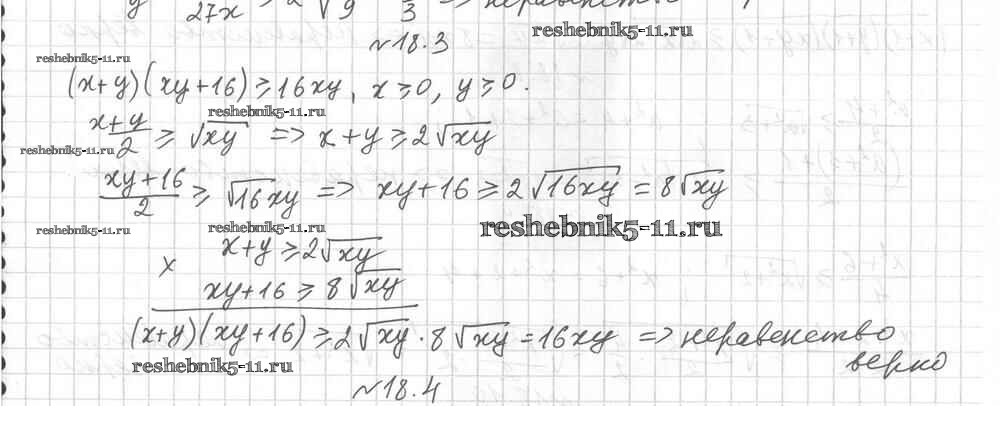 27x 2√9 3 => неравенство
№18.3
reshebnik5-11.ru
reshebnik5-11.ru
(x+y)(xy+16) ≥ 16xy, x ≥ 0, y ≥ 0.
reshebnik5-11.ru
x+y/2 ≥ √xy => x+y ≥ 2√xy
reshebnik5-11.ru
xy+16/2 ≥ √16xy => xy+16 ≥ 2√16xy = 8√xy
reshebnik5-11.ru
reshebnik5-11.ru
reshebnik5-11.ru
x+y ≥ 2√xy
x
xy+16 ≥ 8√xy
(x+y)(xy+16) ≥ 2√xy · 8√xy = 16xy => неравенство
верно
reshebnik5-11.ru
№18.4